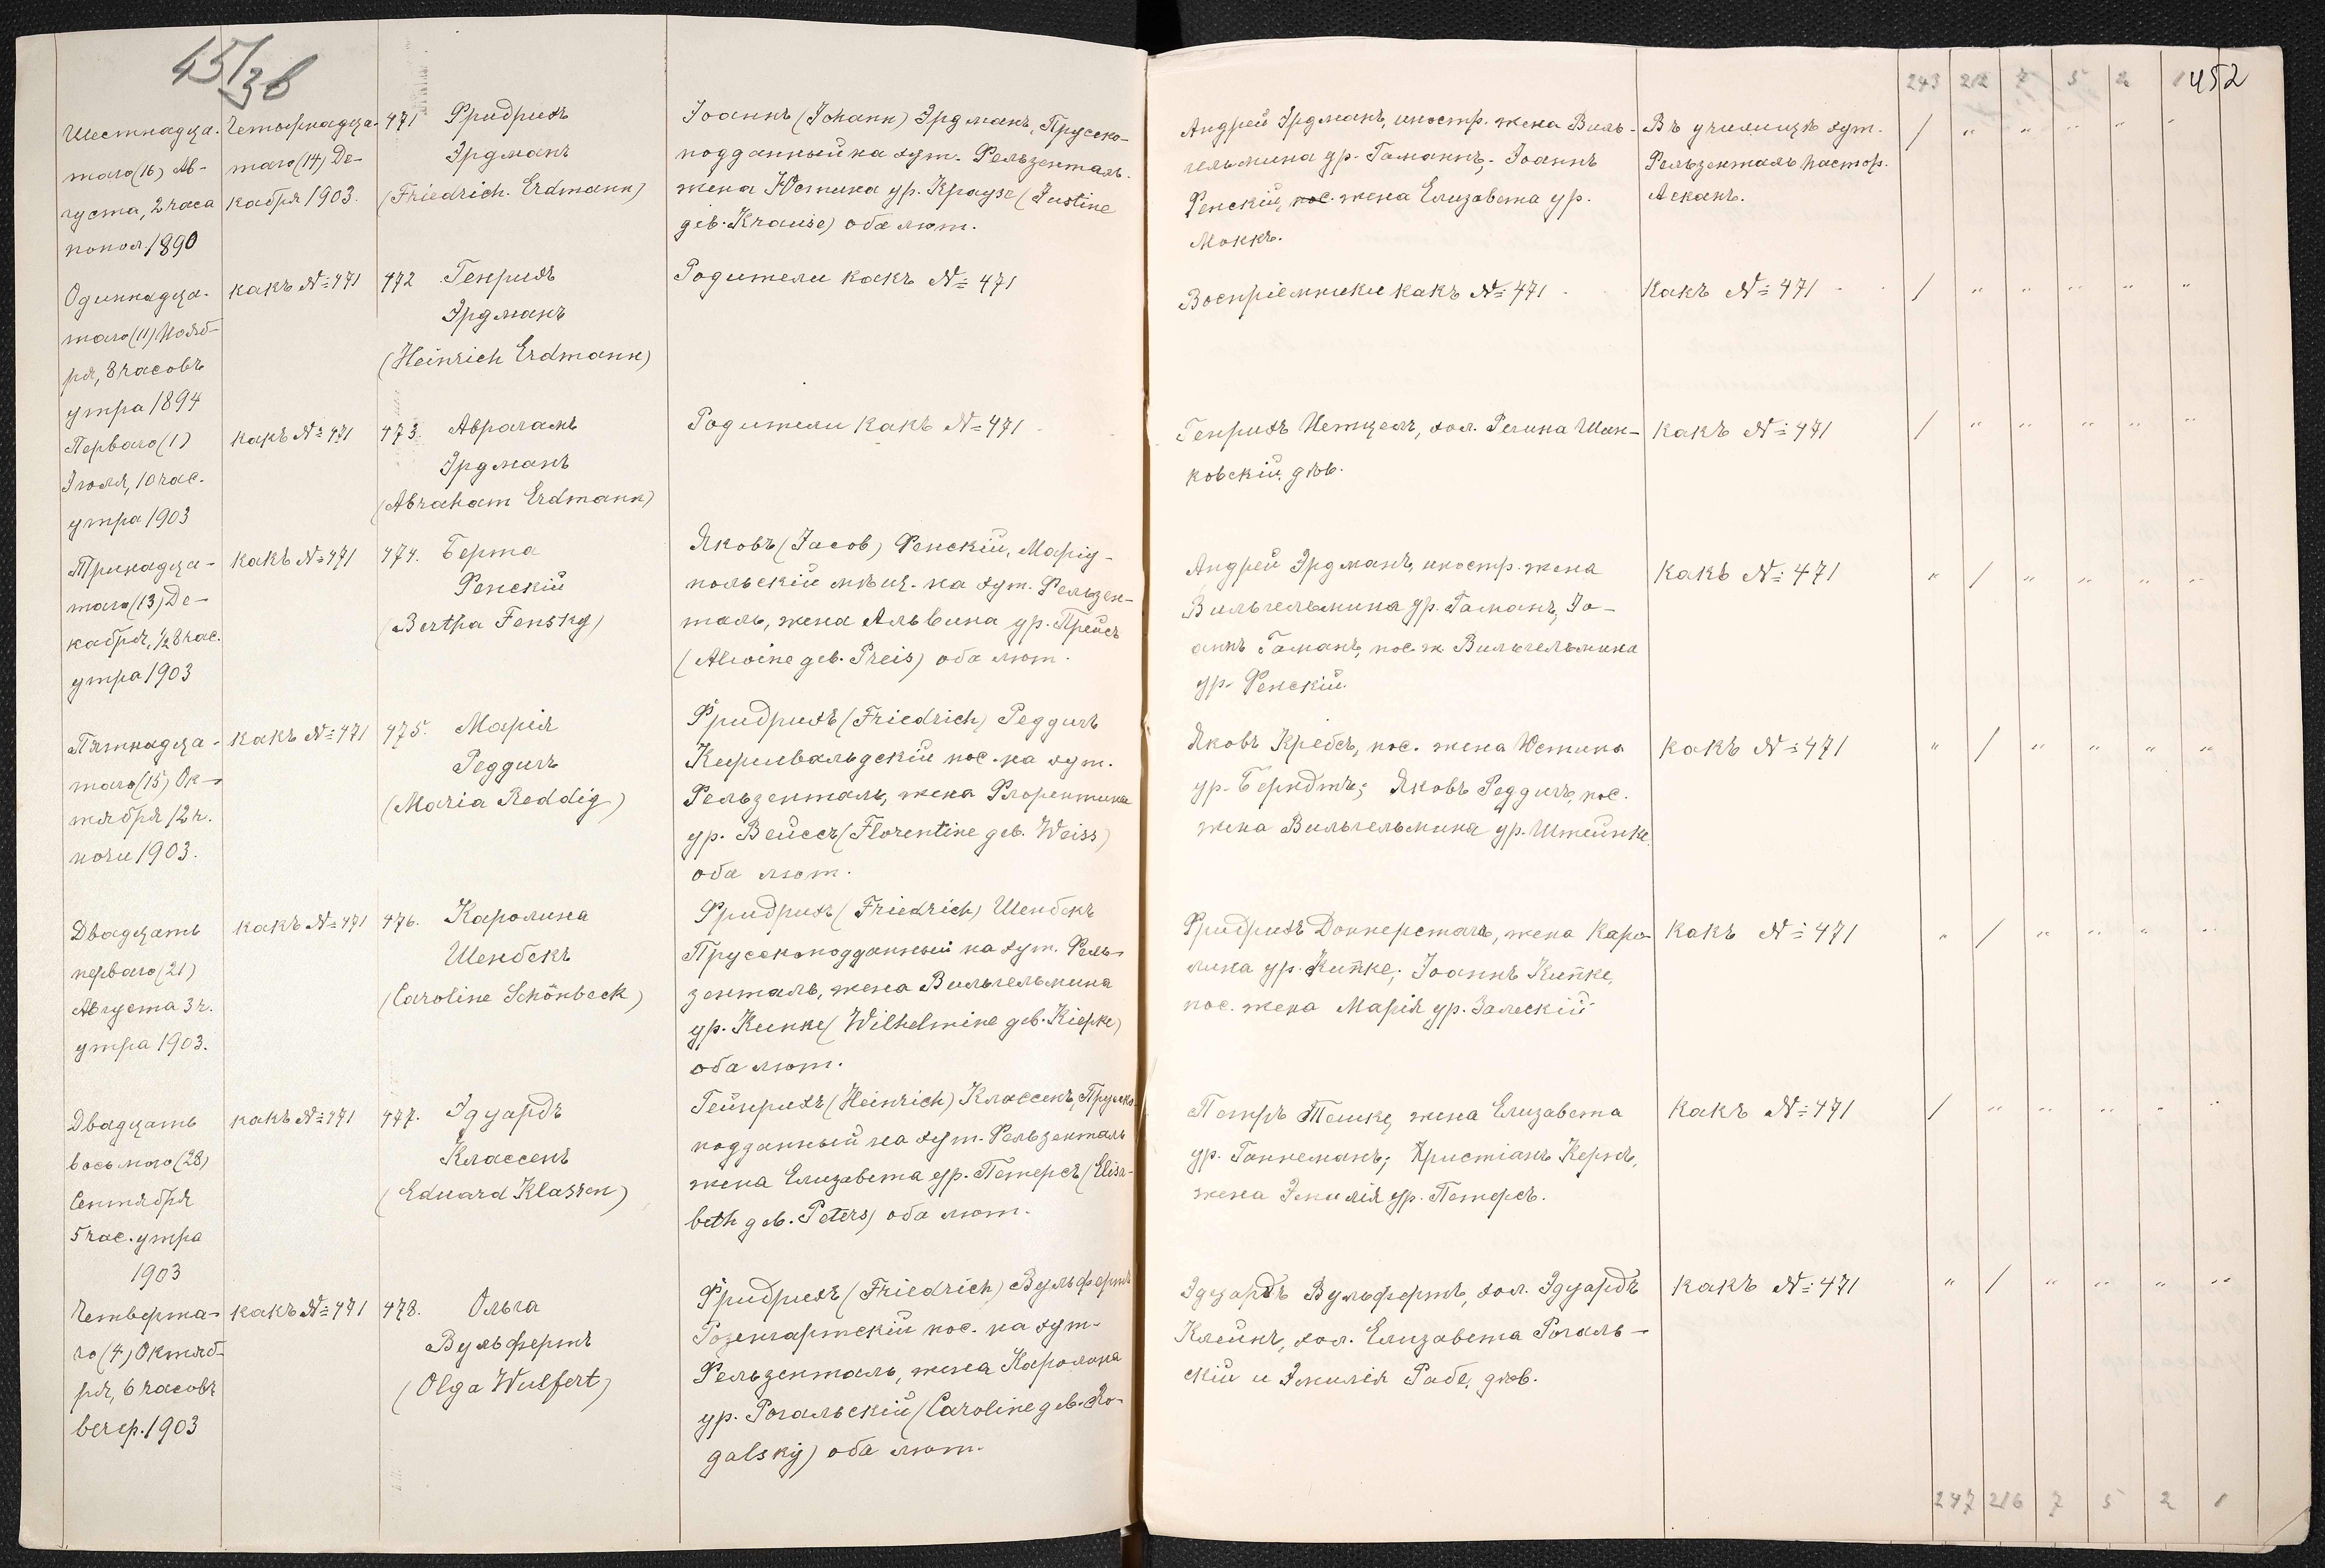 45/36
243 212 7 5 2 1 452
Шестнадца-
таго (16) Ав-
густа, 2 часа
попол. 1890
Четырнадца-
таго (14) Де-
кабря 1903.
471 Фридрихъ
Эрдманъ
(Friedrich Erdmann)
Іоаннъ (Johann) Эрдманъ, Прусско-
подданный на хут. Рельзенталь.
жена Юстина ур. Краузе (Justine
geb. Krause) оба лют.
Андрей Эрдманъ, иностр. жена Виль-
гельмина ур. Гаманнъ; Іоаннъ
Фенскій, пос. жена Елизавета ур.
Моккъ.
Въ училищѣ хут.
Рельзенталь пастор.
Аеканъ.
/ " " " " "
Одиннадца-
таго (11) Нояб-
ря, 8 часовъ
утра 1894
какъ №471
472 Генрихъ
Эрдманъ
(Heinrich Erdmann)
Родители какъ № 471
Воспріемники какъ № 471
Какъ № 471
/ " " " " "
Перваго (1)
Іюля, 10 час.
утра 1903
какъ № 471
473. Авраамъ
Эрдманъ
(Abraham Erdmann)
Родители какъ № 471
Генрихъ Петцель, хол. Регина Шин-
ковскій, дѣв.
какъ № 471
/ " " " " "
Тринадца-
таго (13) Де-
кабря, ½8 час.
утра 1903
какъ № 471
474. Берта
Фенскій
(Bertha Fensky)
Яковъ (Jacob) Фенскій, Маріу-
польскій мѣщ. на хут. Рельзен-
таль, жена Альвина ур. Прейсъ
(Alwine geb. Preis) оба лют.
Андрей Эрдманъ, иностр. жена
Вильгельмина ур. Гаманъ, Іо-
аннъ Гаманъ, пос. ж. Вильгельмина
ур. Фенскій.
какъ № 471
" / " " " "
Пятнадца-
таго (15) Ок-
тября 12 ч.
ночи 1903.
какъ № 471
475. Марія
Реддигъ
(Maria Reddig)
Фридрихъ (Friedrich) Реддигъ
Киривальдскій пос. на хут.
Рельзенталь, жена Флорентина
ур. Вейссъ (Florentine geb. Weiss)
оба лют.
Яковъ Кребсъ, пос. жена Юстина
ур. Берндтъ; Яковъ Реддигъ, пос.
жена Вильгельмина ур. Штейнке.
какъ № 471
" / " " " "
Двадцать
перваго (21)
Августа 3 ч.
утра 1903.
какъ № 471
476. Каролина
Шенбекъ
(Caroline Schönbeck)
Фридрихъ (Friedrich) Шенбекъ
Прусскоподданный на хут. Рель-
зенталь, жена Вильгельмина
ур. Кипке (Wilhelmine geb. Kiepke)
оба лют.
Фридрихъ Доннерстагъ, жена Каро-
лина ур. Кипке; Іоаннъ Кипке,
пос. жена Марія ур. Залескій
Какъ № 471
" / " " " "
Двадцать
восьмаго (28)
Сентября
5 час. утра
1903
какъ № 471
477. Эдуардъ
Классенъ
(Eduard Klassen)
Гейнрихъ (Heinrich) Классенъ, Прусско-
подданный на хут. Рельзенталь
жена Елизавета ур. Петерсъ (Elisa-
beth geb. Peters) оба лют.
Петръ Тешке, жена Елизавета
ур. Ганнеманъ; Христіанъ Кернъ,
жена Эмилія ур. Петерсъ.
Какъ № 471
/ " " " " "
Четверта-
го (4) Октяб-
ря, 6 часовъ
вечер. 1903
какъ № 471
478. Ольга
Вульфертъ
(Olga Wulfert)
Фридрихъ (Friedrich) Вульфертъ
Розенгартскій пос. на хут.
Рельзенталь, жена Каролина
ур. Рогальскій (Caroline geb. Ro-
galsky) оба лют.
Эдуардъ Вульфертъ, хол. Эдуардъ
Клейнъ, хол. Елизавета Рогаль-
скій и Эмилія Рабе, дѣв.
какъ № 471
" / " " " "
247 216 7 5 2 1